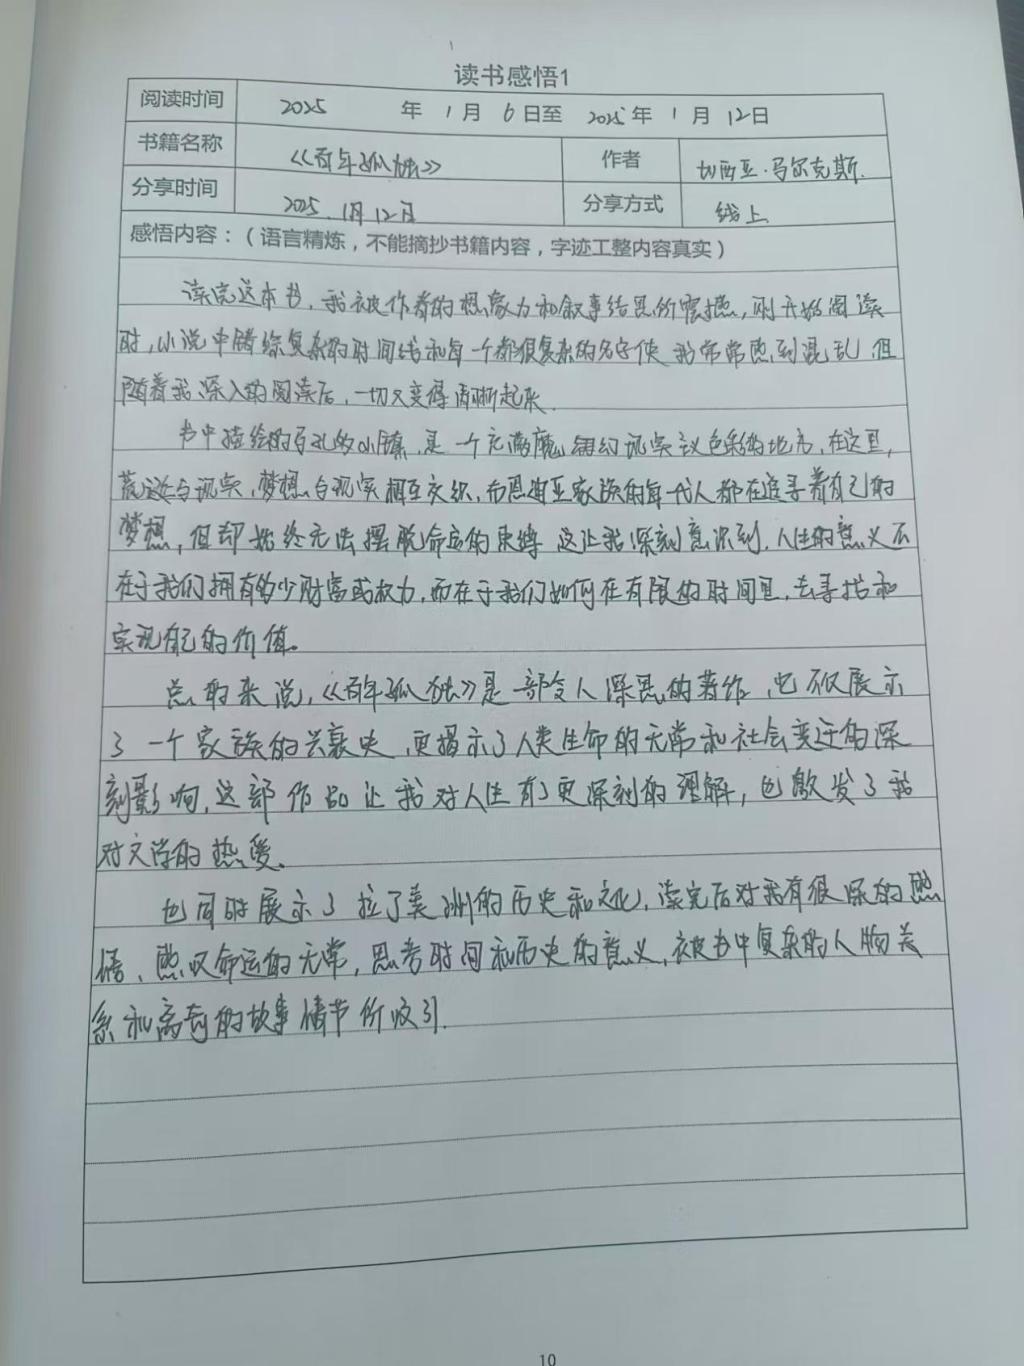 读书感悟1
阅读时间 2025 年 1 月 6 日至 2025 年 1 月 12日
书籍名称 《百年孤独》 作者 加西亚·马尔克斯.
分享时间 2025.1月12日 分享方式 线上
感悟内容：（语言精炼，不能摘抄书籍内容，字迹工整内容真实）
读完这本书，我被作者的想象力和叙事结思所震撼，刚开始阅读
时，小说中错综复杂的时间线和每一个都很复杂的名字使我常常感到混乱，但
随着我深入的阅读后，一切又变得清晰起来.
书中描绘的 的小镇，是一个充满魔 幻现实议色彩的地方，在这里，
荒诞与现实，梦想与现实相互交织，布恩迪亚家族的每一代人都在追寻着自己的
梦想，但却始终无法摆脱命运的束缚 这让我深刻意识到，人生的意义不
在于我们拥有多少财富或权力，而在于我们如何在有限的时间里，去寻找和
实现自己的价值。
总的来说，《百年孤独》是一部令人深思的著作，它不仅展示
了一个家族的兴衰史，更揭示了人类生命的无常和社会变迁的深
刻影响，这部作品让我对人生有了更深刻的理解，也激发了我
对文学的热爱.
也同时展示了拉丁美洲的历史和文化，读完后对我有很深的感
悟、感叹命运的无常，思考时间和历史的意义，被书中复杂的人物关
系和离奇的故事情节所吸引.
10